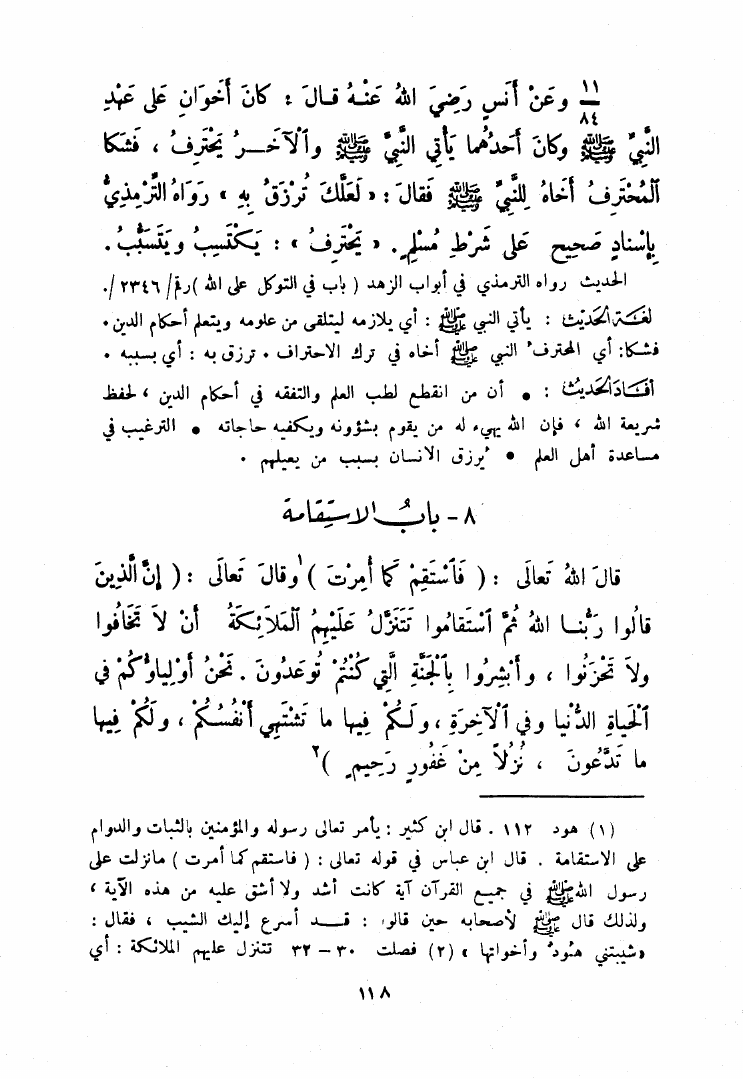 ١١/٨٤ وعَنْ أَنَسٍ رَضِيَ اللهُ عَنْـهُ قـالَ : كانَ أَخَوانِ عَلى عَهْدِ
النَّبِيِّ ﷺ وكانَ أَحَدُهُما يَأْتِي النَّبِيَّ ﷺ والْآخَـــرُ يَحْتَرِفُ ، فَشَكا
الْمُحْتَرِفُ أَخاهُ لِلنَّبِيِّ ﷺ فَقالَ : « لَعَلَّكَ تُرْزَقُ بِهِ » رَوَاهُ التِّرْمِذِيُّ
بِإِسْنادٍ صَحِيحٍ عَلى شَرْطِ مُسْلِمٍ . « يَحْتَرِفُ » : يَكْتَسِبُ ويَتَسَبَّبُ .
الحديث رواه الترمذي في أبواب الزهد ( باب في التوكل على الله ) رقم / ٢٣٤٦ / .
لغـة الحديث : يأتي النبي ﷺ : أي يلازمه ليتلقى من علومه ويتعلم أحكام الدين .
فشكا : أي المحترف النبي ﷺ أخاه في ترك الاحتراف . ترزق به : أي بسببه .
أفاد الحديث : • أن من انقطع لطب العلم والتفقه في أحكام الدين ، لحفظ
شريعة الله ، فإن الله يهيء له من يقوم بشؤونه ويكفيه حاجاته • الترغيب في
مساعدة أهل العلم • يُرزق الانسان بسبب من يعيلهم .
٨ - بابُ الاستِقامة
قالَ اللهُ تَعالَى : ( فَاسْتَقِمْ كَما أُمِرْتَ )١ وقالَ تَعالَى : ( إنَّ الَّذِينَ
قالُوا رَبُّنـا اللهُ ثُمَّ اسْتَقامُوا تَتَنَزَّلُ عَلَيْهِمُ الْمَلَائِكَةُ أَنْ لَا تَخافُوا
ولَا تَحْزَنُوا ، وأَبْشِرُوا بِالْجَنَّةِ الَّتِي كُنْتُمْ تُوعَدُونَ . نَحْنُ أَوْلِياؤُكُمْ في
الْحَياةِ الدُّنْيا وفي الْآخِرَةِ ، ولَـكُمْ فِيها ما تَشْتَهِي أَنْفُسُكُمْ ، ولَكُمْ فِيها
ما تَدَّعُونَ ، نُزُلاً مِنْ غَفُورٍ رَحِيمٍ )٢
(١) هود ١١٢ . قال ابن كثير : يأمر تعالى رسوله والمؤمنين بالثبات والدوام
على الاستقامة . قال ابن عباس في قوله تعالى : ( فاستقم كما أمرت ) مانزلت على
رسول الله ﷺ في جميع القرآن آية كانت أشد ولا أشق عليه من هذه الآية ،
ولذلك قال ﷺ لأصحابه حين قالوا : قـــد أسرع إليك الشيب ، فقال :
« شيبتني هُودٌ وأخواتها » (٢) فصلت ٣٠ - ٣٢ تتنزل عليهم الملائكة : أي
١١٨